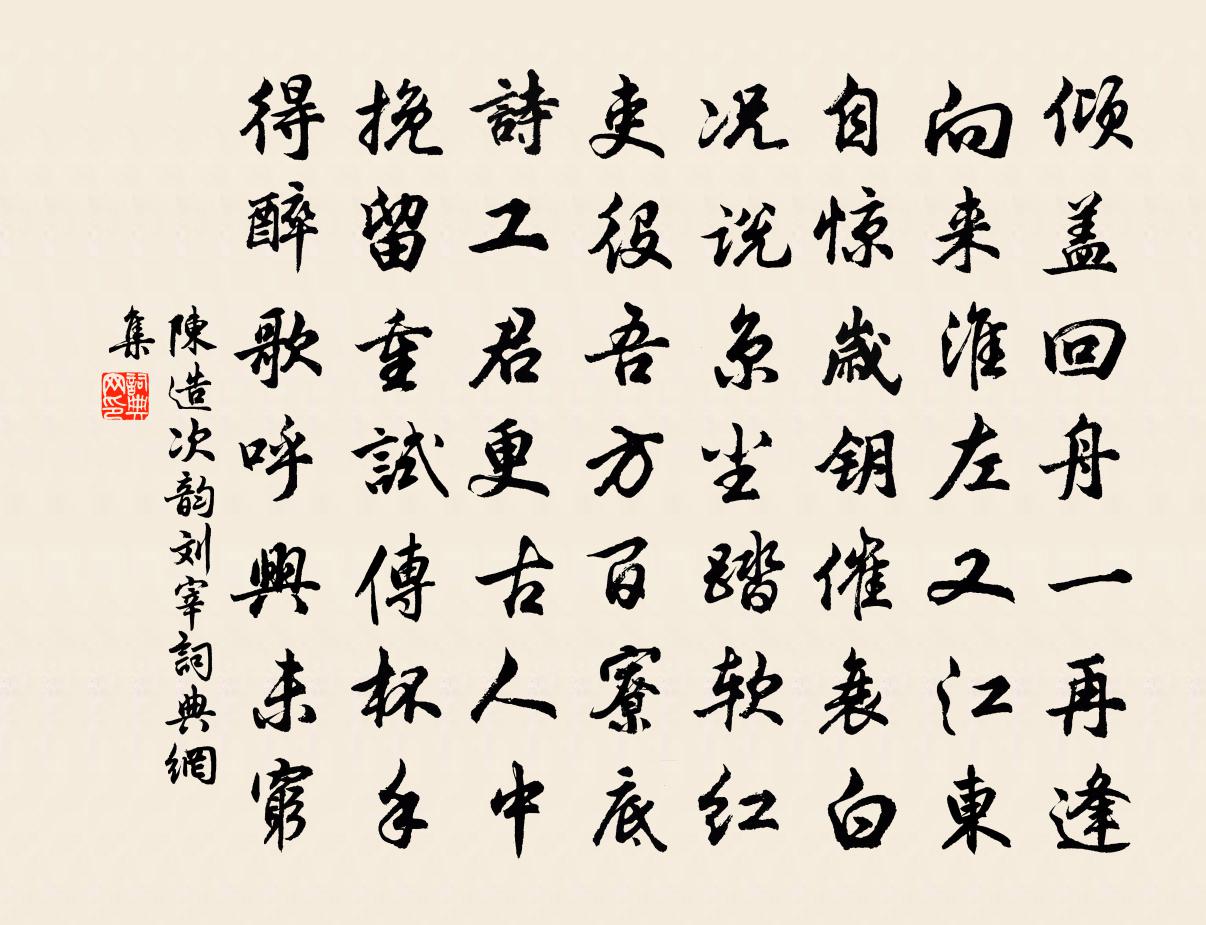 倾盖回舟一再逢
向来淮左又江東
自惊歳钥催衰白
况说京尘踏软红
吏役吾方百寮底
詩工君更古人中
挽留重試傳杯手
得醉歌呼興未窮
陳造次韵刘宰詞典網
集
詞典
网印